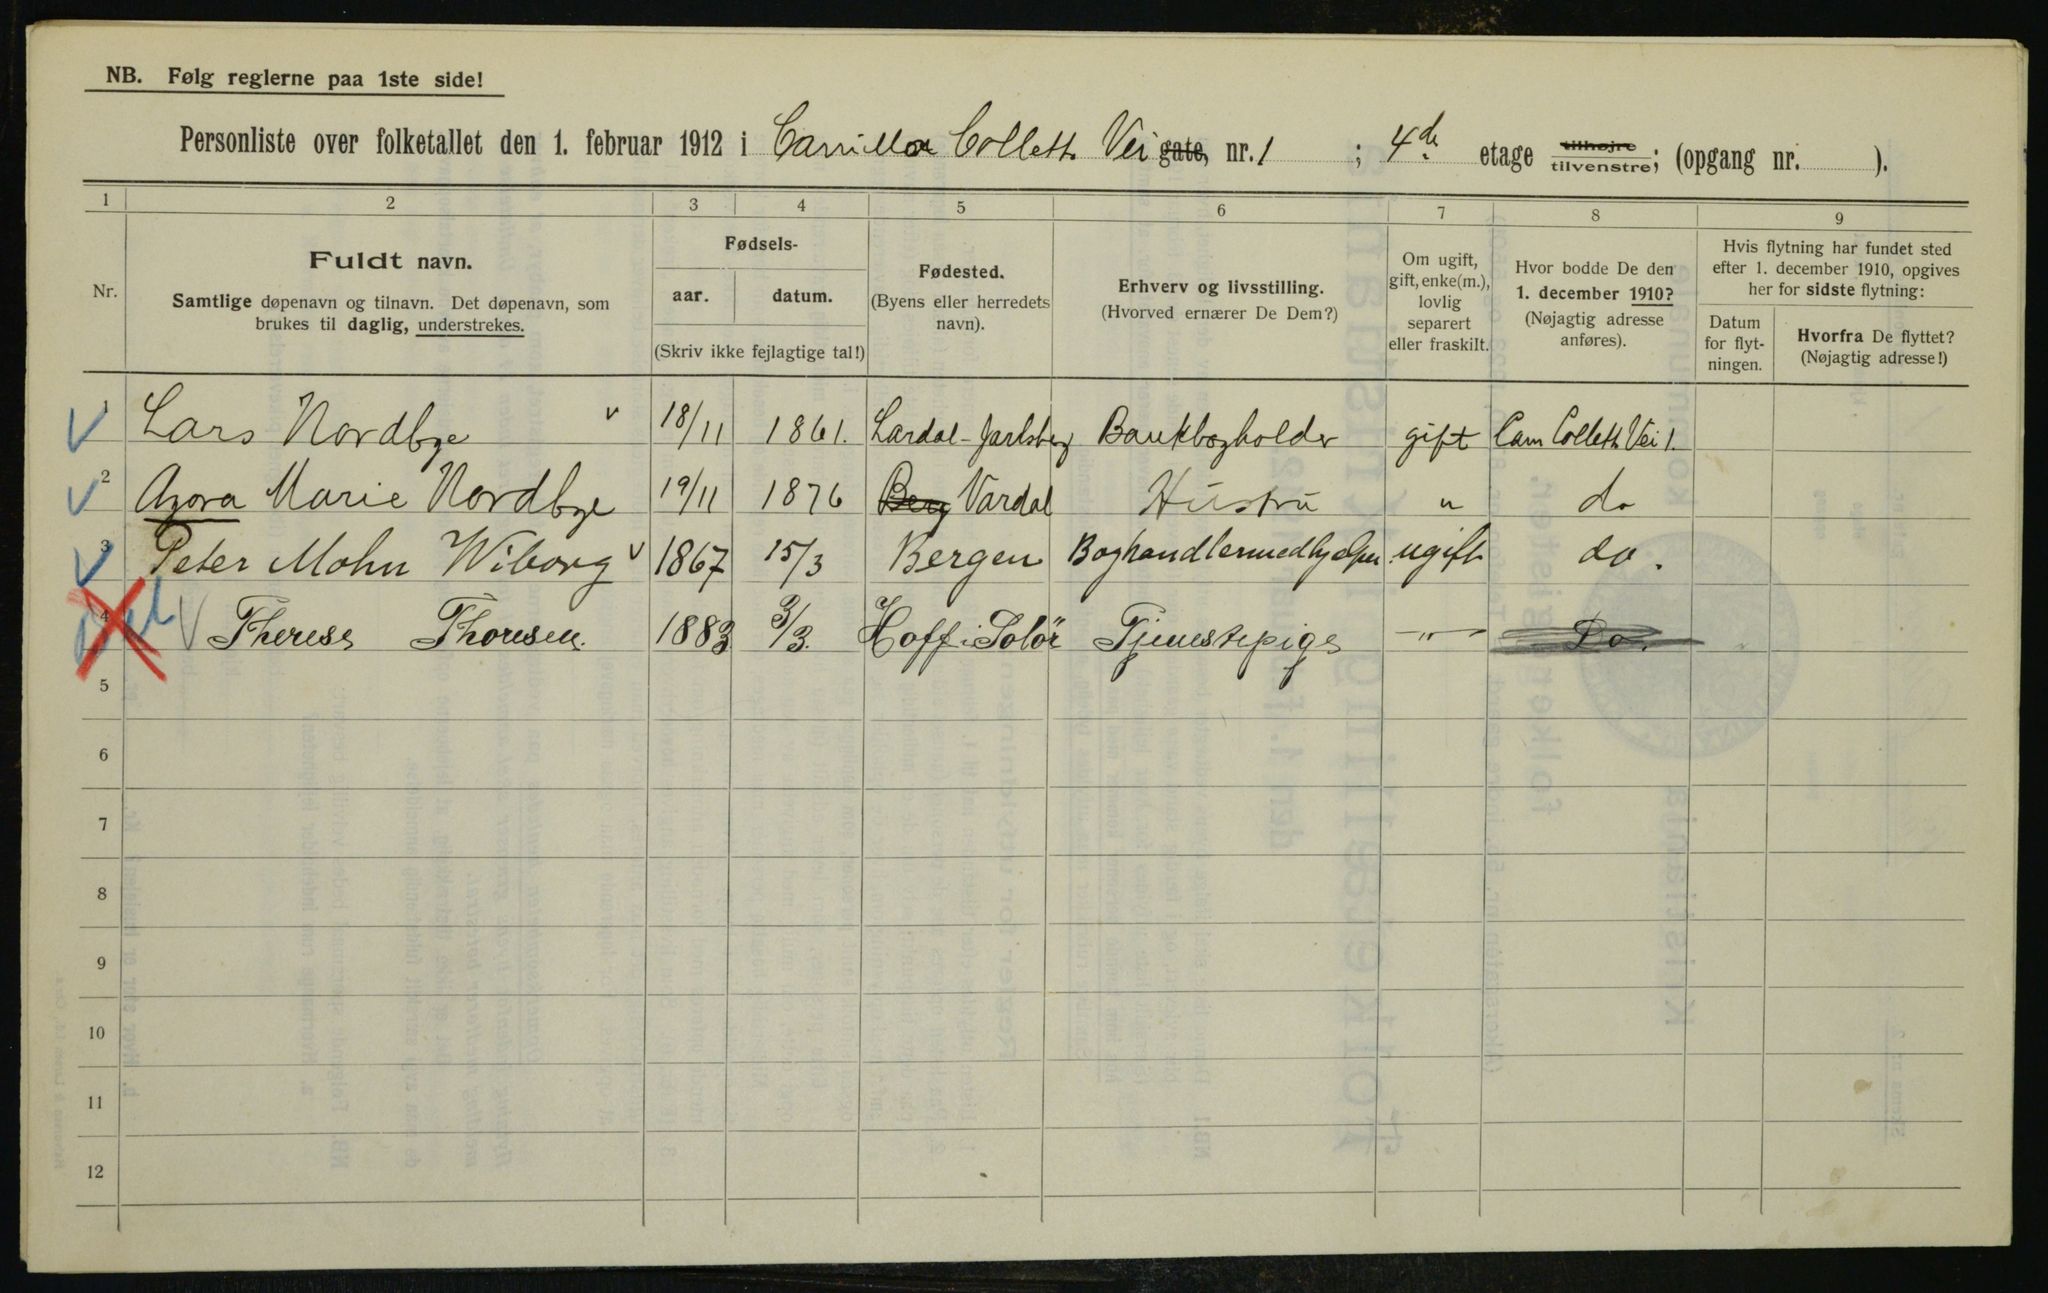 NB. Følg reglerne paa 1ste side!
Personliste over folketallet den 1. februar 1912 i Camilla Colletts Vei gate, nr. 1 ; 4de etage tilhøjre tilvenstre; (opgang nr. ).
1 2 3 4 5 6 7 8 9
Nr.
Fuldt navn.
Samtlige døpenavn og tilnavn. Det døpenavn, som
brukes til daglig, understrekes.
Fødsels-
aar. datum.
(Skriv ikke fejlagtige tal!)
Fødested.
(Byens eller herredets
navn).
Erhverv og livsstilling.
(Hvorved ernærer De Dem?)
Om ugift,
gift, enke(m.),
lovlig
separert
eller fraskilt.
Hvor bodde De den
1. december 1910?
(Nøjagtig adresse
anføres).
Hvis flytning har fundet sted
efter 1. december 1910, opgives
her for sidste flytning:
Datum
for flyt-
ningen.
Hvorfra De flyttet?
(Nøjagtig adresse!)
1 Lars Nordbye 18/11 1861. Lardal-Jarlsberg Bankbogholder gift Cam Colletts Vei 1.
2 Agora Marie Nordbye 19/11 1876 Berg Vardal Hustru " do
3 Peter Mohn Wiborg 1867 15/3 Bergen Boghandlermedhjelper ugift do.
4 Therese Thoresen. 1883 3/3. Hoff i Solör Tjenestepige -"- Do.
5
6
7
8
9
10
11
12